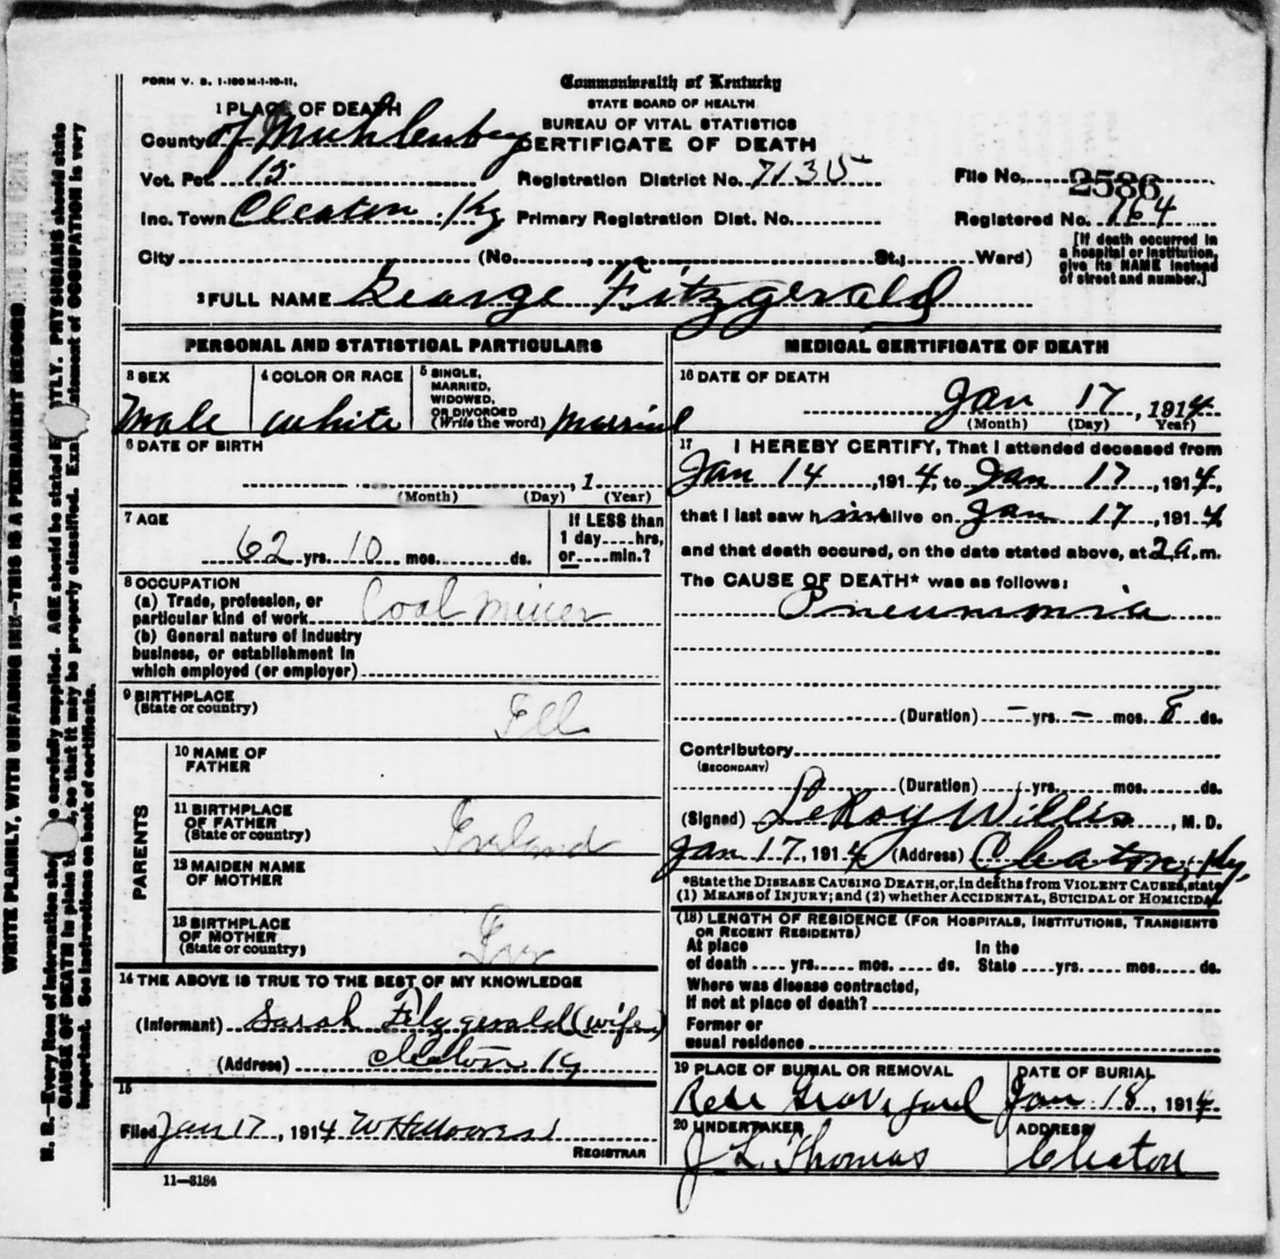 FORM V. S. 1-100 M-1-10-11.
Commonwealth of Kentucky
STATE BOARD OF HEALTH
BUREAU OF VITAL STATISTICS
CERTIFICATE OF DEATH
1 PLACE OF DEATH
County of Muhlenberg
Vot. Pct. 15
Registration District No. 7135
File No. 2586
Inc. Town Cleaton Ky
Primary Registration Dist. No.
Registered No. 164
City (No. , St.; Ward)
[If death occurred in a hospital or institution, give its NAME instead of street and number.]
2 FULL NAME George Fitzgerald
PERSONAL AND STATISTICAL PARTICULARS
3 SEX Male
4 COLOR OR RACE White
5 SINGLE, MARRIED, WIDOWED, OR DIVORCED (Write the word) Married
6 DATE OF BIRTH
, 1
(Month) (Day) (Year)
7 AGE
62 yrs. 10 mos. ds.
If LESS than 1 day hrs, or min.?
8 OCCUPATION
(a) Trade, profession, or particular kind of work Coal Miner
(b) General nature of industry business, or establishment in which employed (or employer)
9 BIRTHPLACE
(State or country) Ill
PARENTS
10 NAME OF FATHER
11 BIRTHPLACE OF FATHER (State or country) Ireland
12 MAIDEN NAME OF MOTHER
13 BIRTHPLACE OF MOTHER (State or country)
14 THE ABOVE IS TRUE TO THE BEST OF MY KNOWLEDGE
(Informant) Sarah Fitzgerald (wife)
(Address) Cleaton Ky
15
Filed Jan 17, 1914
REGISTRAR
11—3184
MEDICAL CERTIFICATE OF DEATH
16 DATE OF DEATH
Jan 17, 1914
(Month) (Day) (Year)
17 I HEREBY CERTIFY, That I attended deceased from
Jan 14, 1914, to Jan 17, 1914,
that I last saw him alive on Jan 17, 1914
and that death occured, on the date stated above, at 2 a.m.
The CAUSE OF DEATH* was as follows:
Pneumonia
(Duration) – yrs. – mos. 8 ds.
Contributory
(SECONDARY)
(Duration) yrs. mos. ds.
(Signed) LeRoy Willis, M. D.
Jan 17, 1914 (Address) Cleaton, Ky.
*State the DISEASE CAUSING DEATH, or, in deaths from VIOLENT CAUSES, state
(1) MEANS of INJURY; and (2) whether ACCIDENTAL, SUICIDAL or HOMICIDAL
(18) LENGTH OF RESIDENCE (FOR HOSPITALS, INSTITUTIONS, TRANSIENTS OR RECENT RESIDENTS)
At place of death yrs. mos. ds. In the State yrs. mos. ds.
Where was disease contracted,
If not at place of death?
Former or
usual residence
19 PLACE OF BURIAL OR REMOVAL
Graveyard
DATE OF BURIAL
Jan 18, 1914
20 UNDERTAKER
J L Thomas
ADDRESS
Cleaton
WRITE PLAINLY, WITH UNFADING INK—THIS IS A PERMANENT RECORD
N. B.—Every item of information carefully supplied. AGE should be stated EXACTLY. PHYSICIANS should state
CAUSE OF DEATH in plain so that it may be properly classified. statement of OCCUPATION is very
important. See instructions on back of certificate.